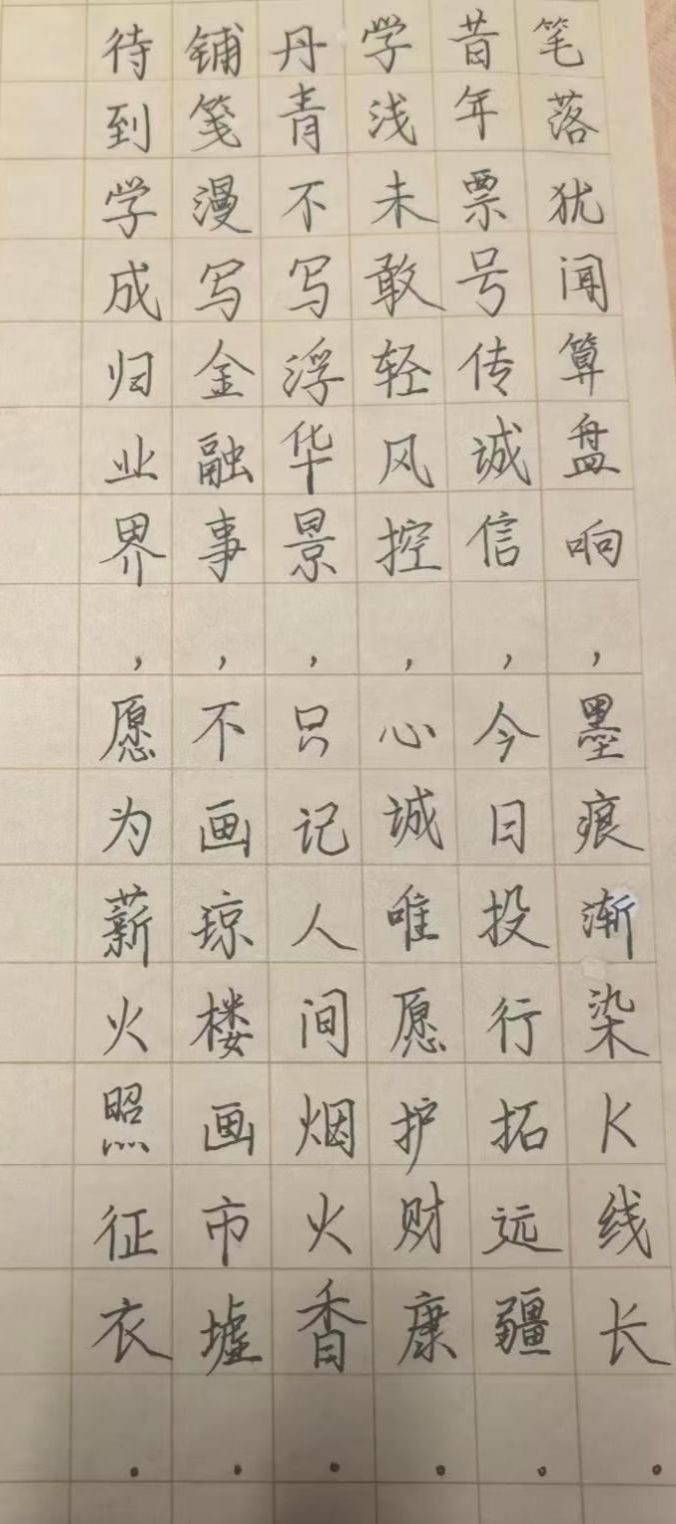 笔落犹闻算盘响，墨痕渐染K线长.
昔年票号传诚信，今日投行拓远疆.
学浅未敢轻风控，心诚唯愿护财康.
丹青不写浮华景，只记人间烟火香.
铺笺漫写金融事，不画琼楼画市墟.
待到学成归业界，愿为薪火照征衣.